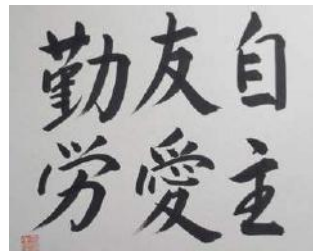 自主
友愛
勤労